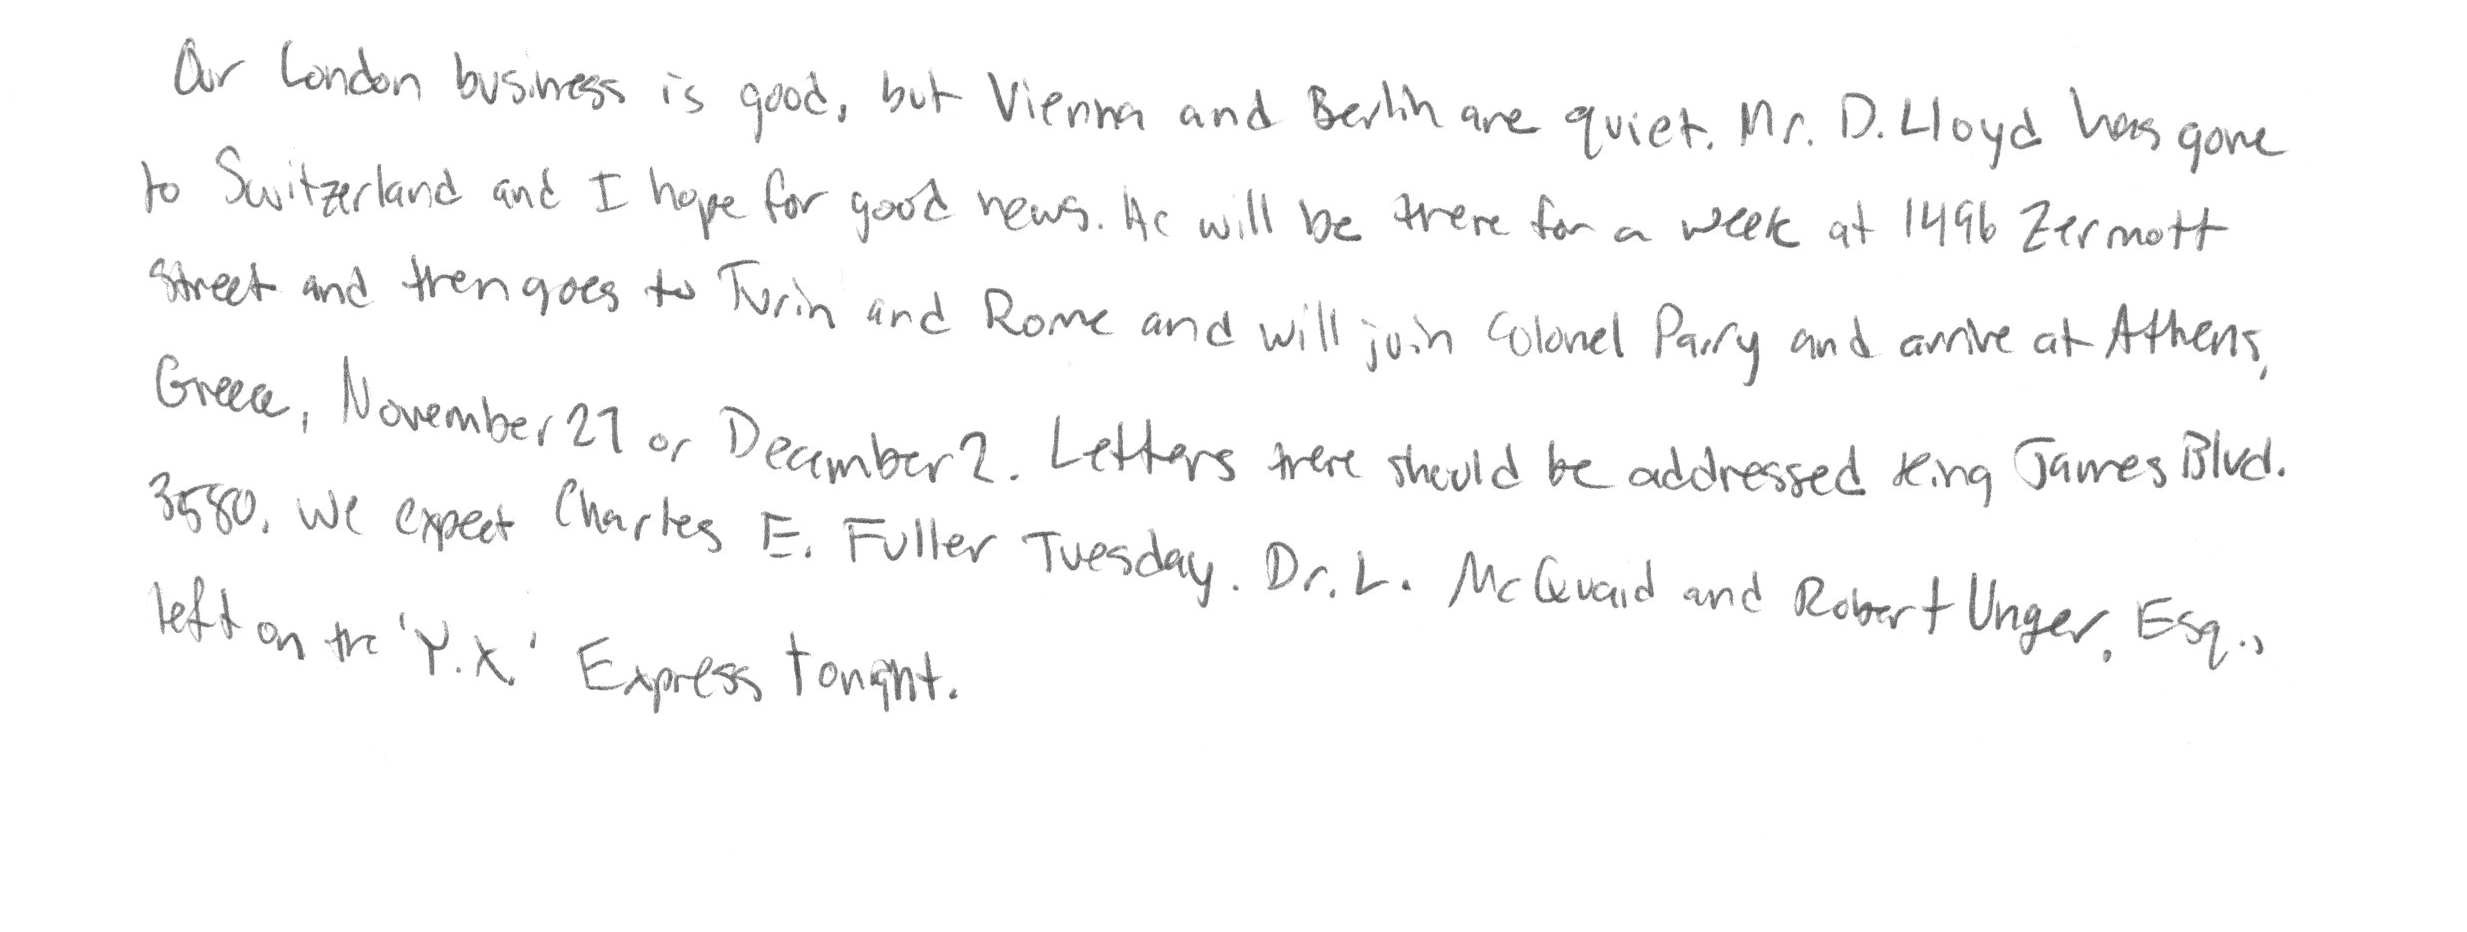 Our London business is good, but Vienna and Berlin are quiet. Mr. D. Lloyd has gone
to Switzerland and I hope for good news. He will be there for a week at 1496 Zermott
Street and then goes to Turin and Rome and will join Colonel Parry and arrive at Athens,
Greece, November 27 or December 2. Letters there should be addressed King James Blvd.
3580. We expect Charles E. Fuller Tuesday. Dr. L. McQuaid and Robert Unger, Esq.,
left on the 'Y.X.' Express tonight.